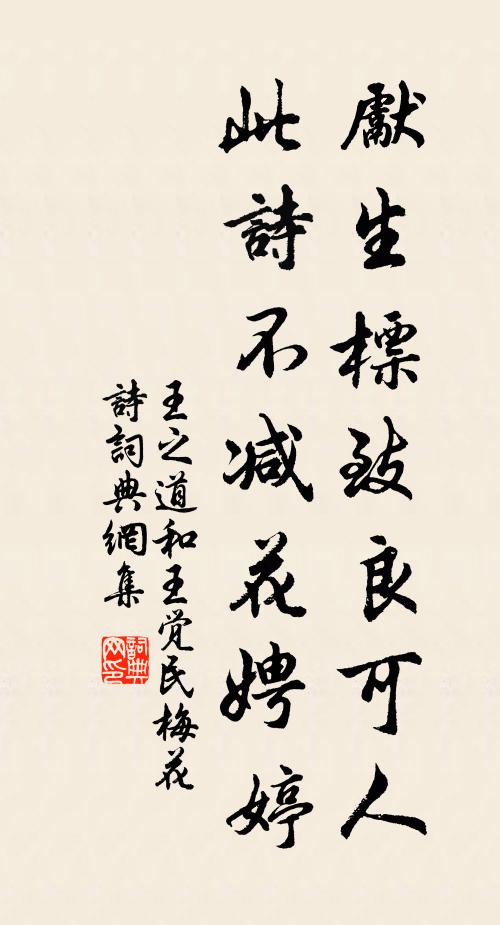 獻生標致良可人
此詩不减花娉婷
王之道和王觉民梅花
詩詞典網集
詞典
网印